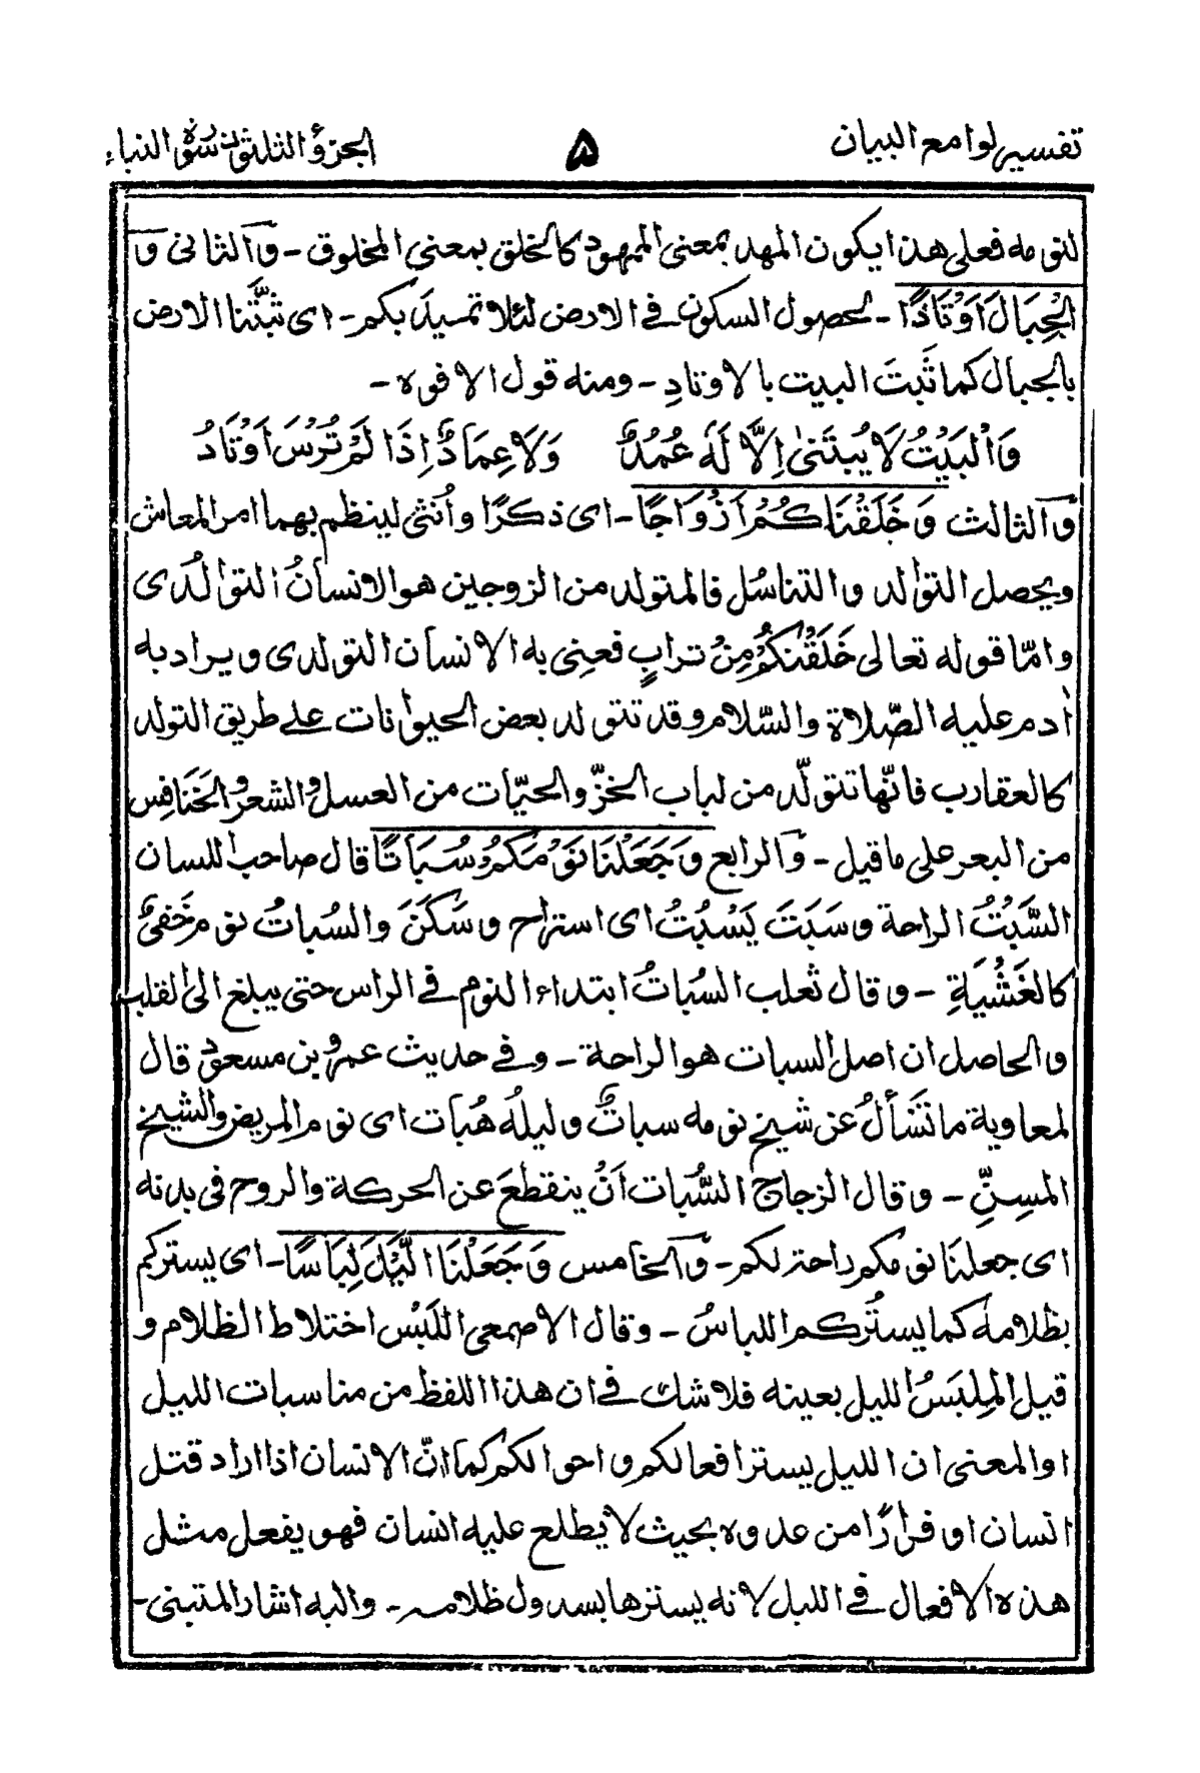 تفسير لوامع البيان
۵
الجزؤ الثلثون سورة النباء
لنومه فعلى هذا يكون المهد بمعنى الممهود كالخلق بمعنى المخلوق - والثانى وَ
الْجِبَالَ اَوْتَادًا - لحصول السكون فى الارض لئلا تميد بكم - اى ثبّتنا الارض
بالجبال كما ثَبتَ البيت بالاوتادِ - ومنه قول الافوه -
وَالْبَيْتُ لَا يُبْتَنىٰ اِلَّا لَهٗ عُمُدٌ وَلَا عِمَادٌ اِذَا لَمْ تُرْسَ اَوْتَادُ
والثالث وَخَلَقْنَاكُمْ اَزْوَاجًا - اى ذكرًا واُنثى لينظم بهما امر المعاش
ويحصل التوالد والتناسُل فالمتولد من الزوجين هو الانسانُ التوالُدى
وامّا قوله تعالى خَلَقْنٰكُمْ مِنْ ترابٍ فعنى به الانسان التولدى ويراد به
اٰدم عليه الصّلاة والسّلام وقد تتولد بعض الحيوانات على طريق التولد
كالعقارب فانّها تتولّد من لباب الخزّ والحيّات من العسل والشعر والخَنَافِس
من البعر على ما قيل - والرابع وَجَعَلْنَا نَوْمَكُمْ سُبَاتًا قال صاحب اللسان
السَّبْتُ الراحة وسَبَتَ يَسْبُتُ اى استراح وسَكَنَ والسُباتُ نوم خَفىٌ
كالغَشْيَةِ - وقال ثعلب السُباتُ ابتداء النوم فى الراس حتى يبلغ الى القلب
والحاصل ان اصل السبات هو الراحة - وفى حديث عمرو بن مسعود قال
لمعاوية ما تَسَألُ عن شيخ نومه سباتٌ وليلُه هُبات اى نوم المريض والشيخ
المسِنِّ - وقال الزجاج السُّبات اَنْ ينقطعَ عن الحركة والروح فى بدنه
اى جعلنَا نومكم راحة لكم - والخامس وَجَعَلْنَا الَّيْلَ لِبَاسًا - اى يستركم
بظلامه كما يستُركم اللباسُ - وقال الاصمعى اللَبْس اختلاط الظلام و
قيل المِلبَسُ الليل بعينه فلا شك فى ان هذا اللفظ من مناسبات الليل
او المعنى ان الليل يستر افعالكم واحوالكم كما انّ الانسان اذا اراد قتل
انسان او فرارًا من عدوه بحيث لا يطلع عليه انسان فهو يفعل مثل
هذه الافعال فى الليل لانه يسترها بسدول ظلامه - واليه اشار المتنبى -